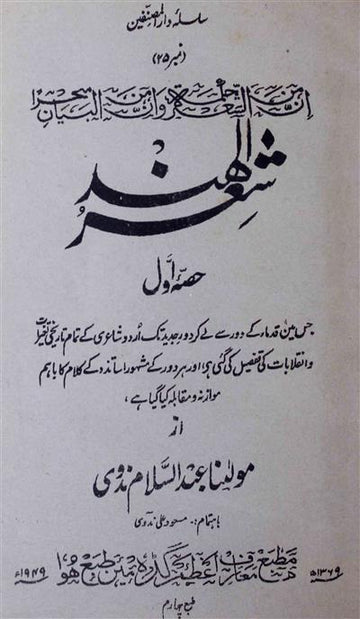 سلسلۂ دار المصنفین
(نمبر ۲۵)
ان من الشعر لحکمۃ وان من البیان لسحرا
شعر الہند
حصہ اول
جس مین قدماء کے دور سے لے کر دور جدید تک اردو شاعری کے تمام تاریخی تغیرات
و انقلابات کی تفصیل کی گئی ہو، اور ہر دور کے مشہور اساتذہ کے کلام کا باہم
موازنہ و مقابلہ کیا گیا ہے،
از
مولینا عبد السلام ندوی
باہتمام:۔ مسعود علی ندوی
مطبع معارف اعظم گڈہ مین طبع ہوا
۱۳۶۹ھ
۱۹۴۹ء
طبع چہارم